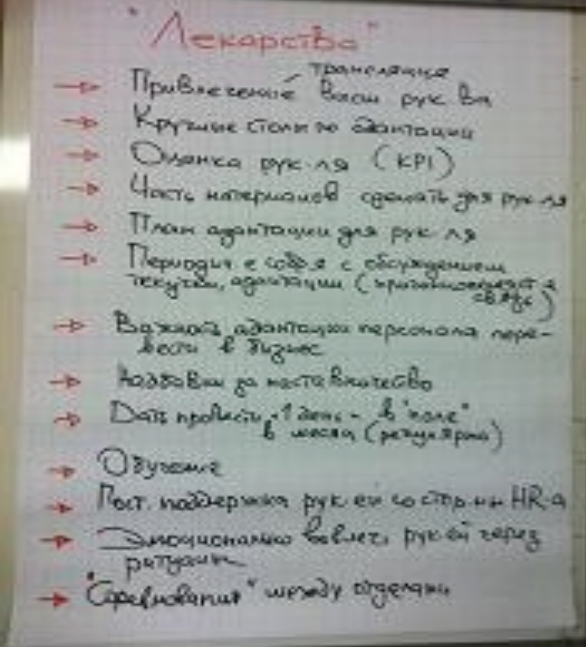 "Лекарства"
трансляция
→ Привлечение высш рук-ва
→ Круглые столы по адаптации
→ Оценка рук-ля (KPI)
→ Часть материалов сделать для рук-ля
→ План адаптации для рук-ля
→ Периодич е собр-я с обсуждением
текучки, адаптации (
связь)
→ Важность адаптации персонала пере-
вести в бизнес
→ Надбавки за наставничество
→ Дать провести 1 день - в "поле"
в месяц (регулярно)
→ Обучение
→ Пост. поддержка рук-ей со стр-ны HR-а
→ Эмоционально вовлеч. рук-ей через
ритуалы
→ "Соревнования" между отделами